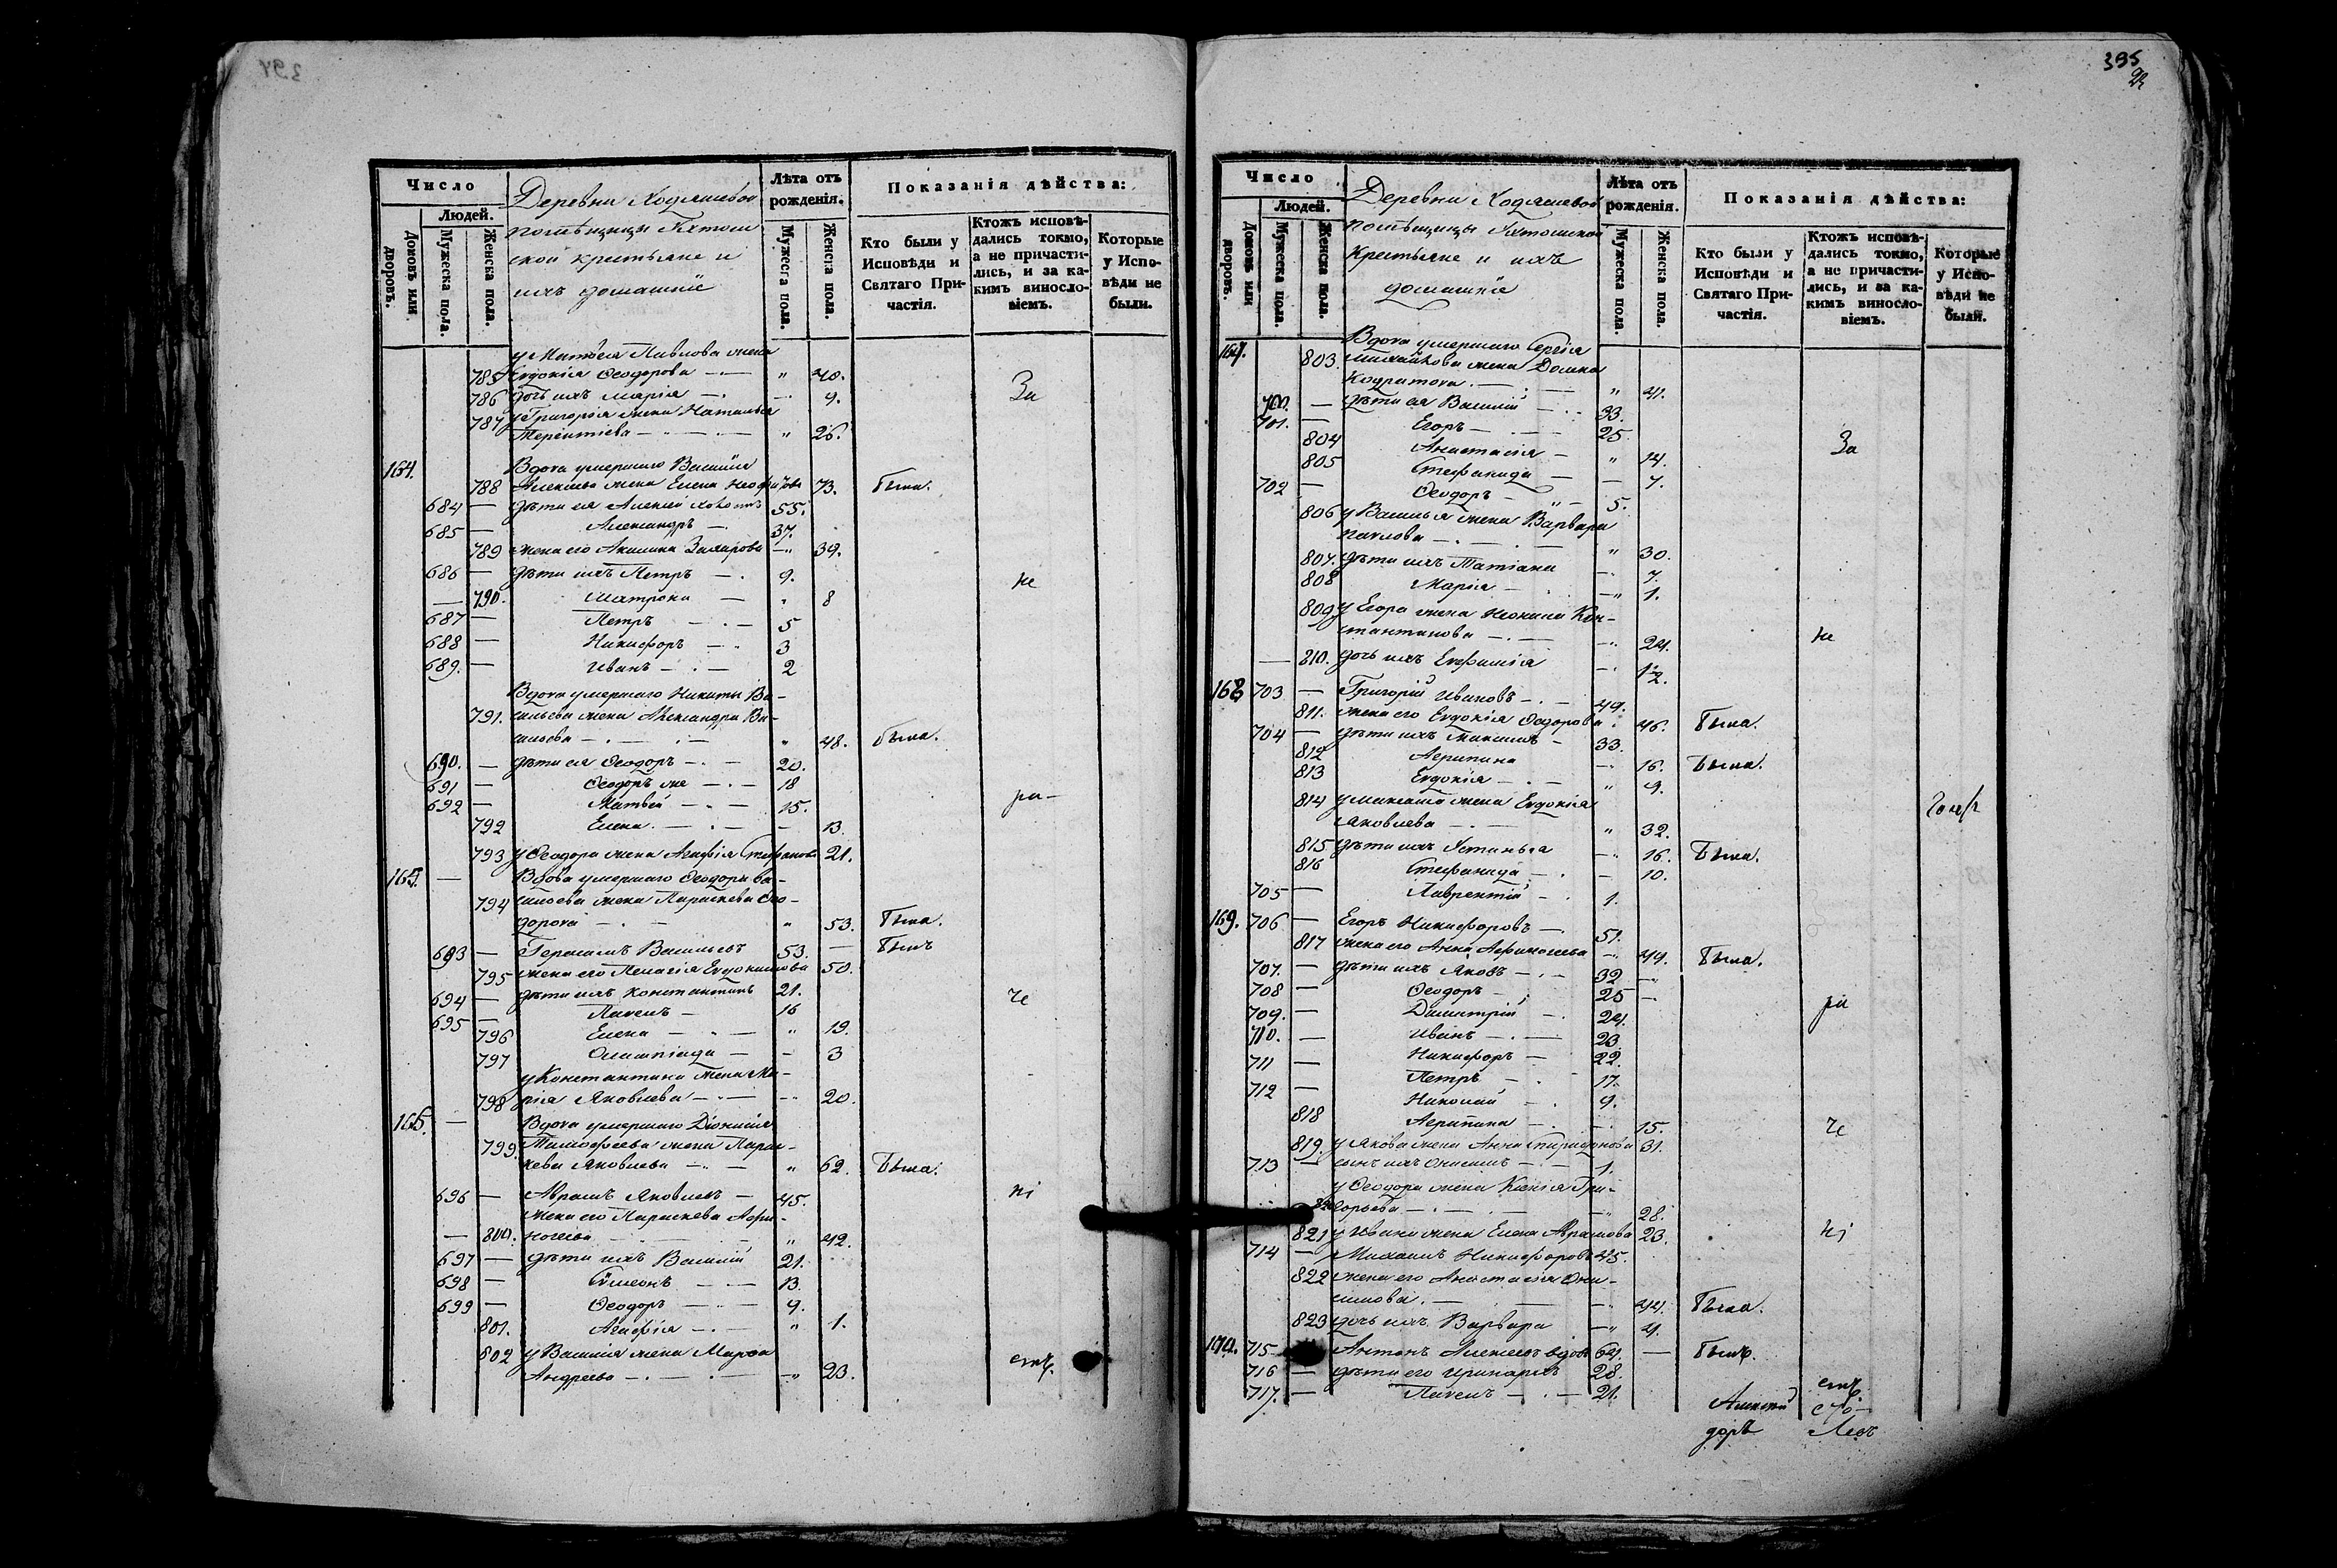 Число
Людей.
Домовъ или дворовъ.
Мужеска пола.
Женска пола.
Деревни Ходяшевой
помѣщицы
ской крестьяне и
ихъ домашніе
Лѣта отъ рожденія.
Мужеска пола.
Женска пола.
Показанія дѣйства:
Кто были у Исповѣди и Святаго Причастія.
Ктожъ исповѣдались токмо, а не причастились, и за какимъ винословіемъ.
Которые у Исповѣди не были.
у Матвея Павлова жена
785 Евдокія Ѳеодорова — " 40.
786 дочь ихъ Марія — 9. За
787 у Григорія жена Наталья
Терентіева — " 26.
164. Вдова умершаго Василія
788 Алексѣева жена Елена 73. Была.
684 — дѣти ея Алексей 55.
685 — Александръ — 37.
789 жена его Акилина — " 39.
686 — дѣти ихъ Петръ — 9. не
— 790. Матрона — " 8
687 — Петръ — 5
688 — Никифоръ — 3
689. — Иванъ — 2
Вдова умершаго Никиты Ва-
791. сильева жена Александра Ва-
сильева — " 48. была.
690. — дѣти ея Ѳеодоръ — 20.
691 — Ѳеодоръ же — 18
692 — Матвей — 15. ра-
792 Елена. — 13.
793 у Ѳеодора жена Агафія Стефанова 21.
165. — Вдова умершаго Ѳеодора Ва-
794 сильева жена Параскева Ѳео-
дорова — " 53. Была.
693 — Герасимъ Васильевъ 53. — Былъ
795 жена его Пелагія Евдокимова 50.
694 — дѣти ихъ Константинъ 21. че
695 — Павелъ — 16
796 Елена — " 19.
797 Олимпіада — 3
у Константина жена Ма-
798 рія Яковлева — 20.
165. — Вдова умершаго Діонисія
799. Тимофеева жена Парас-
кева Яковлева — " 62. Была.
696 — Аврамъ Яковлевъ — 45. ні
жена его Параскева Афи-
— 800. ногеева — " 42.
697 — дѣти ихъ Василій 21.
698 — Сѵмеонъ — 13.
699 — Ѳеодоръ — 9.
801. Агафія — " 1.
802 у Василія жена Марѳа
Андреева — " 23.
395
Число
Людей.
Домовъ или дворовъ.
Мужеска пола.
Женска пола.
Деревни Ходяшевой
помѣщицы
Крестьяне и ихъ
домашніе
Лѣта отъ рожденія.
Мужеска пола.
Женска пола.
Показанія дѣйства:
Кто были у Исповѣди и Святаго Причастія.
Ктожъ исповѣдались токмо, а не причастились, и за какимъ винословіемъ.
Которые у Исповѣди не были.
167. Вдова умершаго Сергія
803. Михайлова жена Домна
Кодратова. — " 41.
700. — дѣти ея Василій — 33.
701. — Егоръ — 25.
804 Анастасія — " 14. За
805 Стефанида — 7.
702 — Ѳеодоръ — 5.
806 у Василья жена Варвара
Павлова — " 30.
807. дѣти ихъ Татіана — 7.
808 Марія — " 1.
809 у Егора жена Неонила Кон-
стантинова — 24. не
— 810. дочь ихъ Евфимія — 1/2.
168 703 — Григорій Ивановъ — 49.
811. жена его Евдокія Ѳеодорова 46. Была.
704 — дѣти ихъ Максимъ — 33.
812 Агрипина — 16. Была.
813 Евдокія — " 9.
814 у Максима жена Евдокія
Яковлева — " 32.
815 дѣти ихъ Устинья — 16. Была.
816 Стефанида — 10.
705 — Лаврентій — 1.
169. 706 — Егоръ Никифоровъ — 51.
817 жена его Анна Афиногеева 49. Была.
707. — дѣти ихъ Яковъ — 32
708 — Ѳеодоръ — 25 ра
709. — Димитрій — 24.
710. — Иванъ — 23.
711 — Никифоръ — 22.
712 — Петръ — 17.
Николай — 9.
818 Агрипина — 15. че
819. у Якова жена Анна Спиридонова 31.
713 — сынъ ихъ Онисимъ — 1.
у Ѳеодора жена Ксенія Гри-
горьева — 28.
821 у Ивана жена Елена Аврамова 23. ні
714 — Михаилъ Никифоровъ 45.
822 жена его Анастасія Они-
симова. — 44. Была.
823 дочь ихъ Варвара — 4.
170. 715 Антонъ Алексеевъ вдовъ 64. — Былъ.
716 — дѣти его Иринархъ 28.
717. — Павелъ — 21.